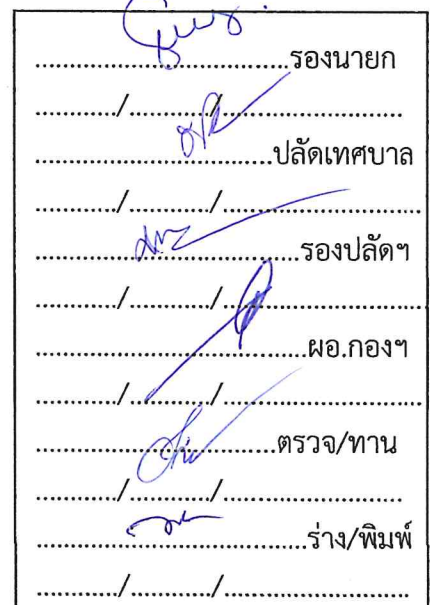 ................................รองนายก
............/............/........................
................................ปลัดเทศบาล
............/............/........................
................................รองปลัดฯ
............/............/........................
................................ผอ.กองฯ
............/............/........................
................................ตรวจ/ทาน
............/............/........................
................................ร่าง/พิมพ์
............/............/........................